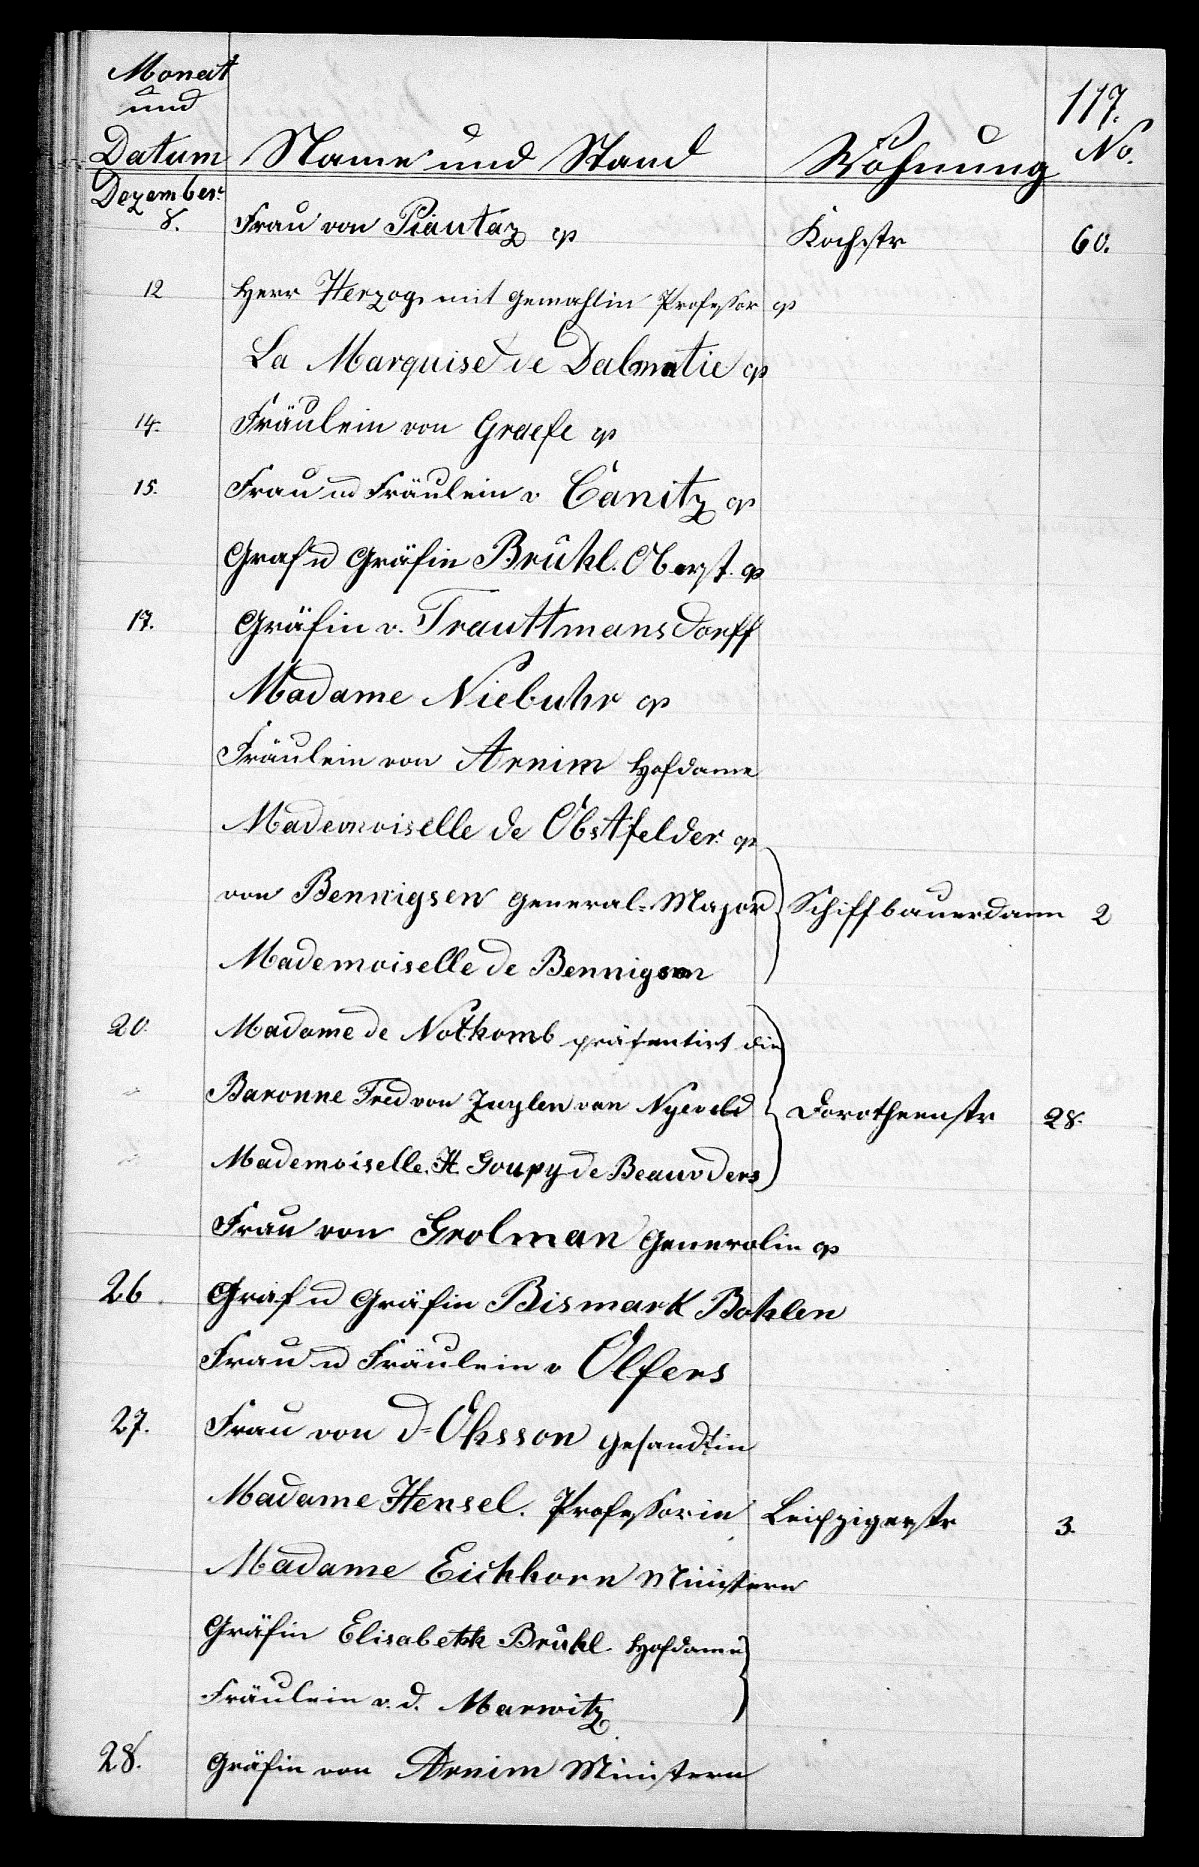 117.
Monat
und
Datum Name und Stand Wohnung No.
Dezember
8. Frau von Piautaz Kochstr 60.
12 Herr Herzog mit Gemahlin Professor
La Marquise de Dalmatie
14. Fräulein von Graefe
15. Frau u Fräulein v Canitz
Graf u Gräfin Brühl. Oberst.
17. Gräfin v. Trauttmansdorff
Madame Niebuhr
Fräulein von Arnim Hofdame
Mademoiselle de Obstfelder
von Bennigsen General-Major Schiffbauerdamm 2
Mademoiselle de Bennigsen
20. Madame de Nothomb präsentirt die
Baronne Fred von Zuylen van Nyeveld Dorotheenstr 28.
Mademoiselle H. Goupy de Beauvders
Frau von Grolman Generalin
26. Graf u Gräfin Bismark Bohlen
Frau u Fräulein v Olfers
27. Frau von d'Ohsson Gesandtin
Madame Hensel. Professorin Leipzigerstr 3.
Madame Eichhorn Ministern
Gräfin Elisabeth Brühl. Hofdame
Fräulein v. d. Marwitz
28. Gräfin von Arnim Ministern